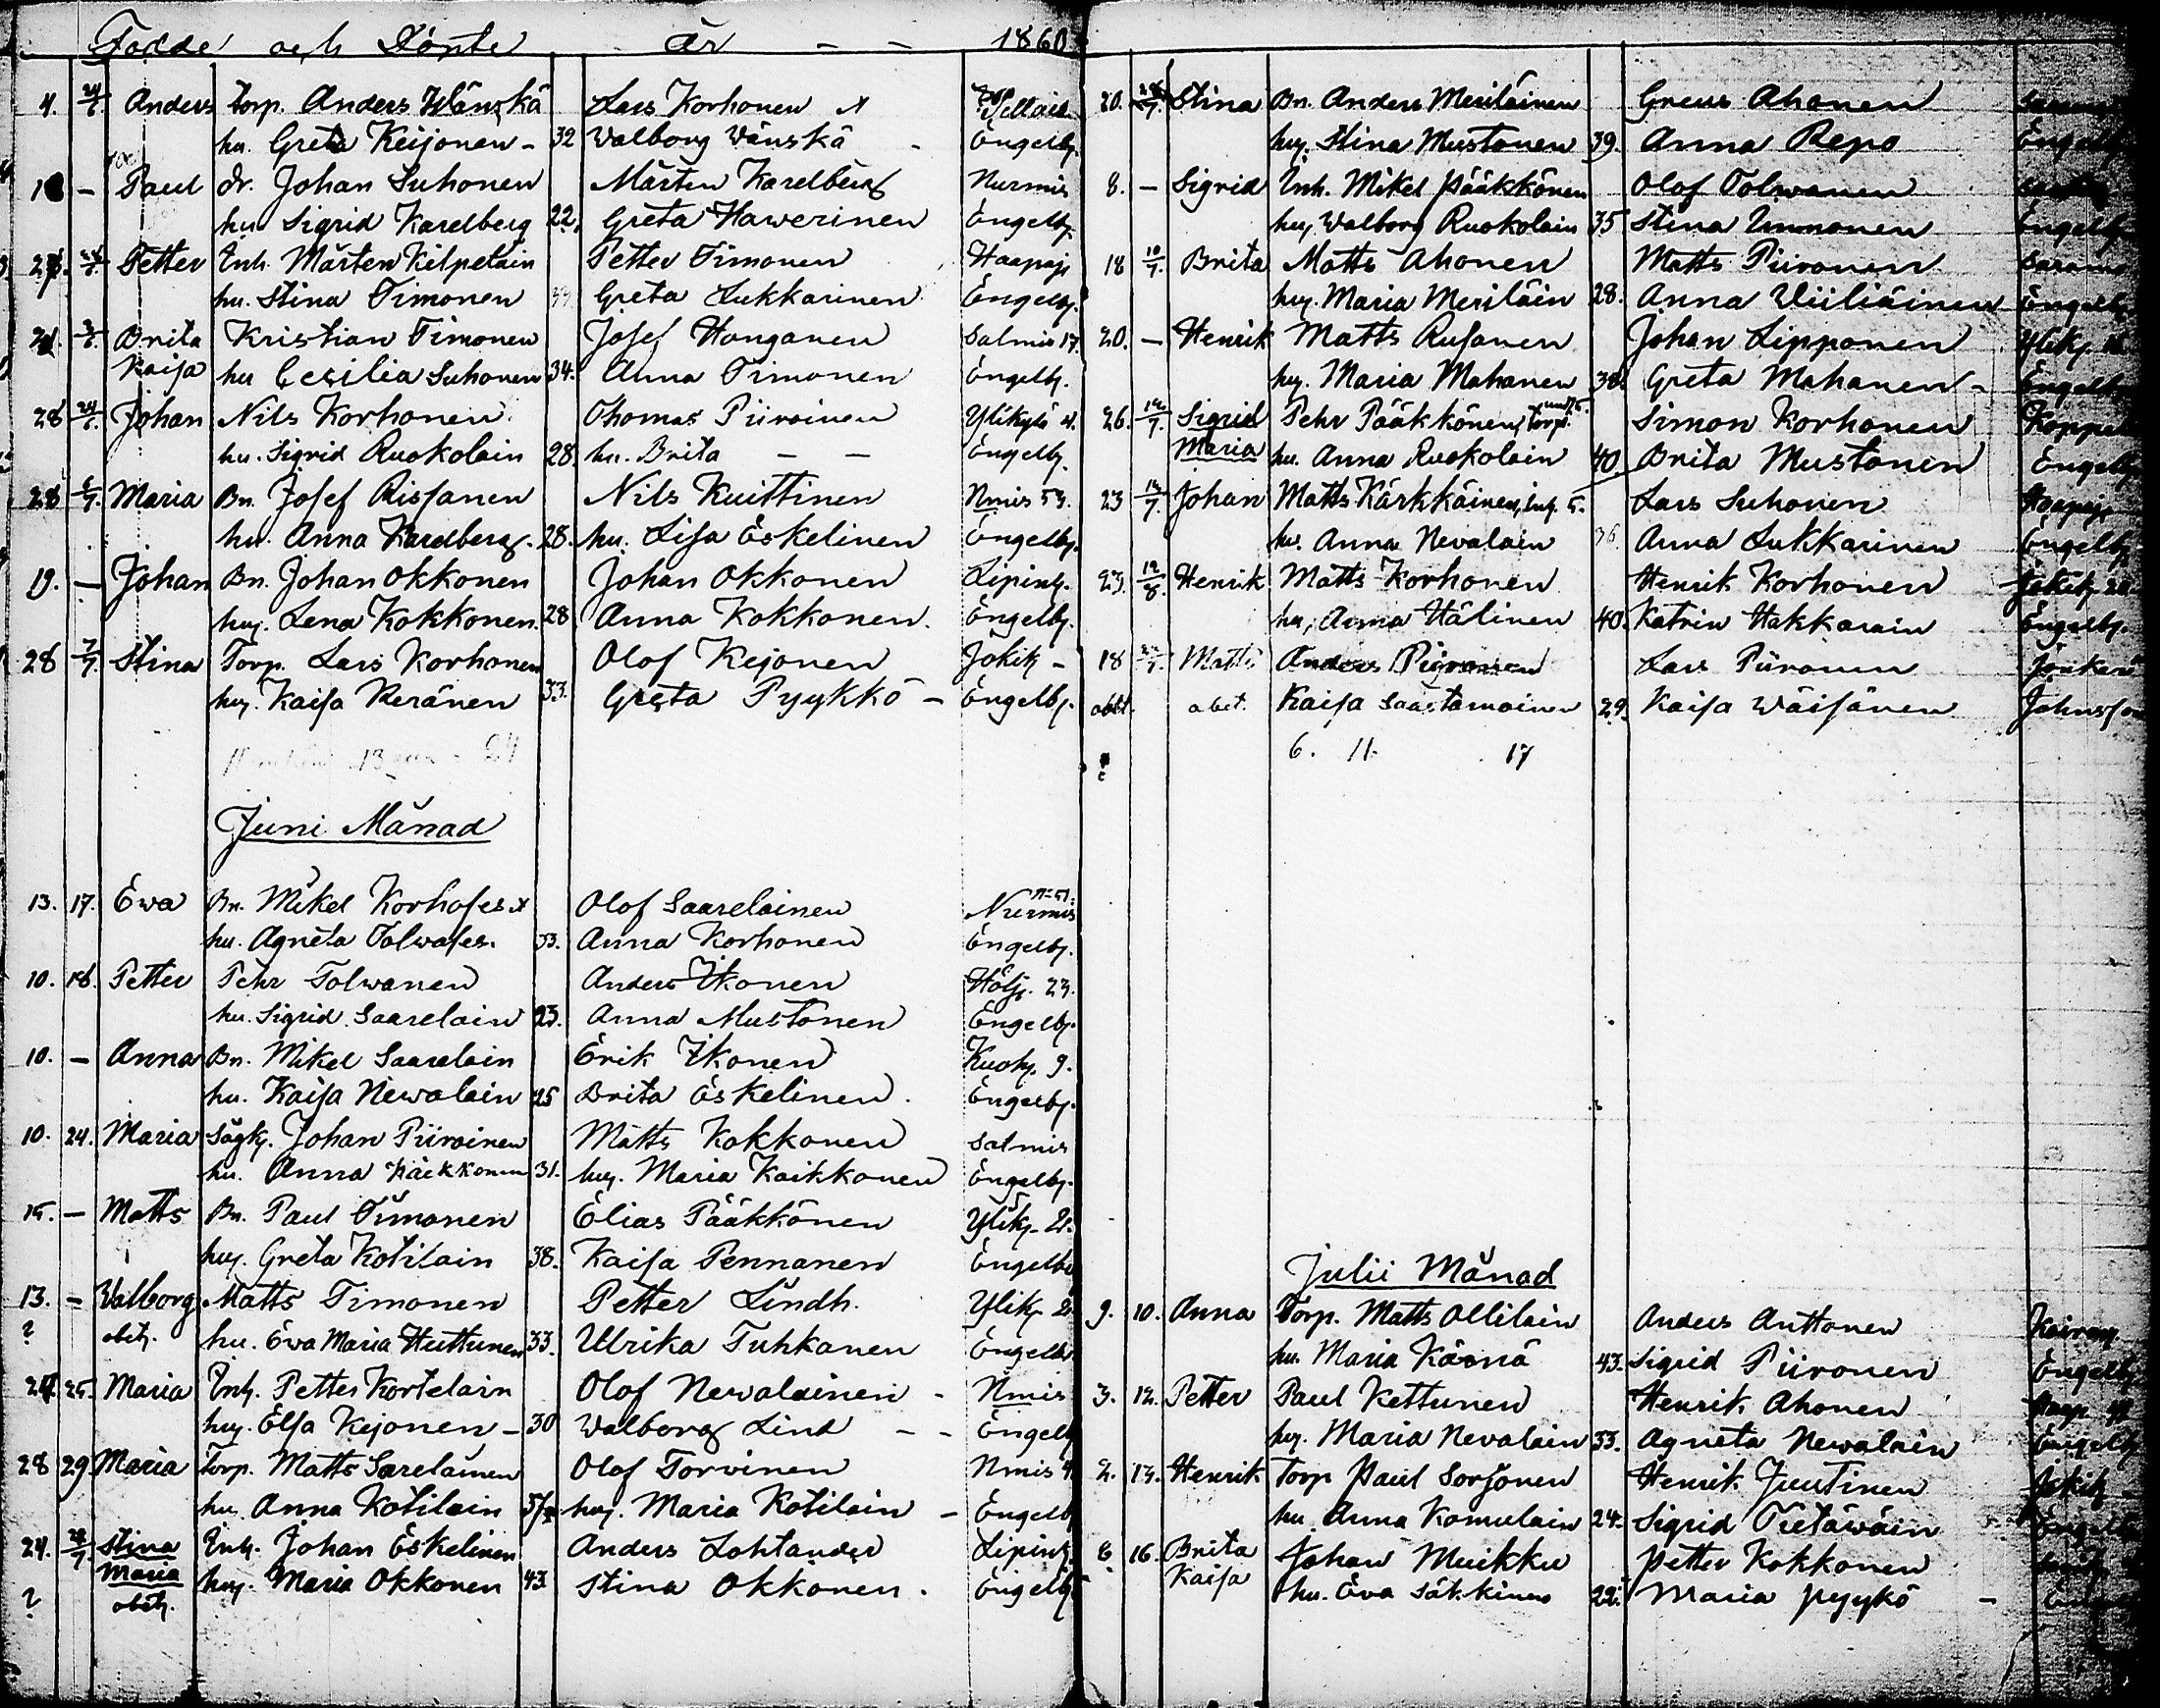 Födde och Döpte år - - 1860
4. 24/7. Anders Torp. Anders Wänskä Lars Korhonen
hu. Greta Keijonen - 32 Walborg Wänskä - Engelbj.
18 - Paul dr. Johan Suhonen Mårten Karelberg Nurmis
hu Sigrid Karelberg 22, Greta Hawerinen Engelbj.
Petter Inh. Mårten Kilpelain Petter Timonen Haapaj.
hu. Stina Timonen Greta Sukkarinen Engelbj.
Brita Kristian Timonen Josef Honganen Salmis 17.
Kaisa hu Cecilia Suhonen 34. Anna Timonen Engelbj.
28 24/7. Johan Nils Korhonen Thomas Piiroinen Ylikylä 4.
hu. Sigrid Ruokolain 28. hu. Brita - - Engelbj.
28 Maria Bn. Josef Rissanen Nils Kuittinen Nmis 53.
hu. Anna Karelberg. 28. hu. Lisa Eskelinen Engelbj.
19. - Johan Bn. Johan Okkonen Johan Okkonen Lipinl.
huj. Lena Kokkonen. 28 Anna Kokkonen. Engelbj.
28 7/7. Stina Torp. Lars Korhonen Olof Kejonen Jokik -
huj. Kaisa Keränen 33. Greta Pyykkö - Engelbj.
Juni Månad
13. 17. Ewa Bn. Mikel Korhoses Olof Saarelainen Nurmis
hu. Agneta Tolwases. 33. Anna Korhonen Engelbj.
10. 18. Petter Pehr Tolwanen Anders Ikonen Hölj. 23.
hu. Sigrid Saarelain 23. Anna Mustonen Engelbj.
10. - Anna Bn. Mikel Saarelain Erik Ikonen Kuohj. 9.
hu. Kaisa Newalain 25 Brita Eskelinen. Engelbj.
10. 24. Maria Sågkj. Johan Piiroinen Matts Kokkonen Salmis
hu. Anna Pääkkönen 31. huj. Maria Kaikkonen Engelbj.
15. - Matts Bn. Paul Timonen Elias Pääkkönen Ylikj. 2.
huj. Greta Kotilain 38. Kaisa Pennanen Engelbj
13. - Walborg Matts Timonen Petter Lindh. Ylikj 2.
? obetj. hu. Ewa Maria Huttunen 33. Ulrika Tuhkanen Engelb
24 25. Maria Inhj. Petter Kortelain Olof Newalainen - Nmis
huj. Elsa Kejonen - 30 Walborg Lind - - Engelb
28 29 Maria Torp. Matts Sarelainen Olof Torvinen Nmis 4.
hu. Anna Kotilain huj. Maria Kotilain - Engelb
24. Stina Inhj. Johan Eskelinen Anders Lohlander Lipinl.
Maria huj. Maria Okkonen 43. Stina Okkonen. Engelbj
? obetj.
20. Stina Bn. Anders Meriläinen Greus Ahonen
huj. Stina Mustonen 39. Anna Repo Engelbj
8. - Sigrid Inh. Mikel Pääkkönen Olof Tolwanen
huj. Walborg Ruokolain 35 Stina Immonen Engelbj
18 10/7. Brita Matts Ahonen Matts Piironen Saramo
huj. Maria Meriläin 28. Anna Viiliäinen Engelbj.
20. - Henrik Matts Rusanen Johan Lipponen Ylikj.
hj. Maria Mahanen 38. Greta Mahanen - Engelbj
26. 12/7. Sigrid Pehr Pääkkönen, Torp. Simon Korhonen
Maria hu. Anna Ruokolain 40. Brita Mustonen Engelbj
23 Johan Matts Kärkkäinen, Lars Suhonen Haapaj
hu. Anna Nevalain 36. Anna Sukkarinen Engelbj
23. 12/8. Henrik Matts Korhonen Henrik Korhonen
hu, Anna Hälinen 40. Katrin Hakkarain Engelbj.
18 Matts Anders Piironen Lars Piironen
obet. obet. Kaisa Saastamoinen 29. Kaisa Wäisänen
6. 11. 17
Julii Månad
9. 10. Anna Torp. Matts Ollilain Anders Anttonen
hu. Maria Kärnä 43. Sigrid Piironen Engelbj
3. 12. Petter Paul Kettunen Henrik Ahonen
huj. Maria Nevalain 33. Agneta Newalain Engelbj
2. 13. Henrik Torp Paul Sorjonen Henrik Juutinen Jokik -
hu. Anna Komulain 24. Sigrid Tietäwäin Engelbj
16. Brita Johan Muikku Petter Kokkonen
Kaisa hu. Eva Säkkinen 22. Maria Pyykö -